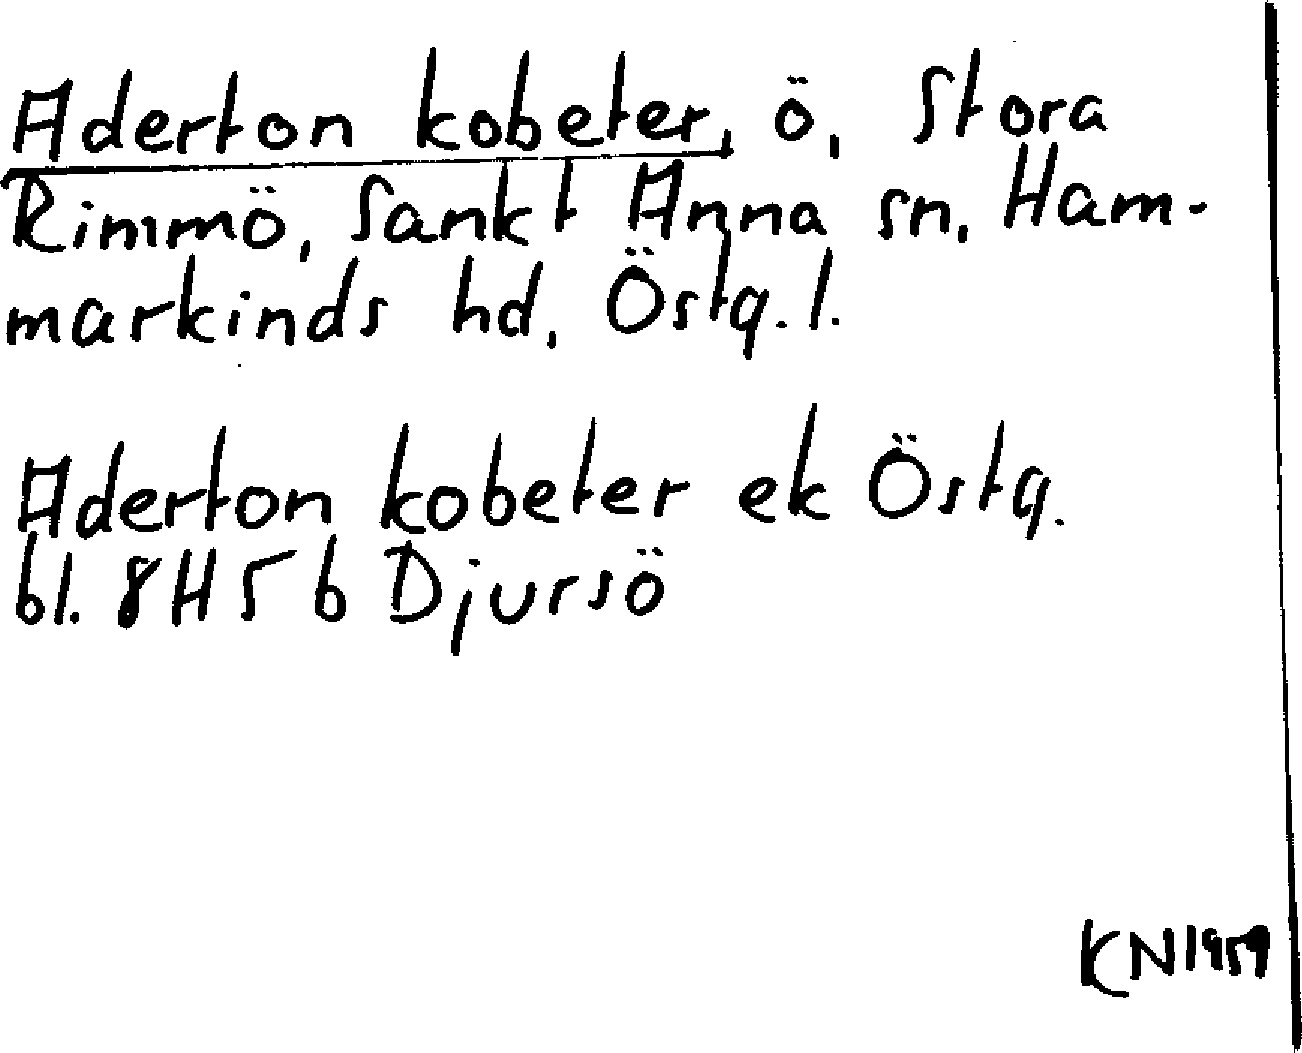 Aderton kobeter, ö, Stora
Rimmö, Sankt Anna sn, Ham-
markinds hd, Östg. l.
Aderton kobeter ek Östg.
bl. 8H 5b Djursö
KN 1959